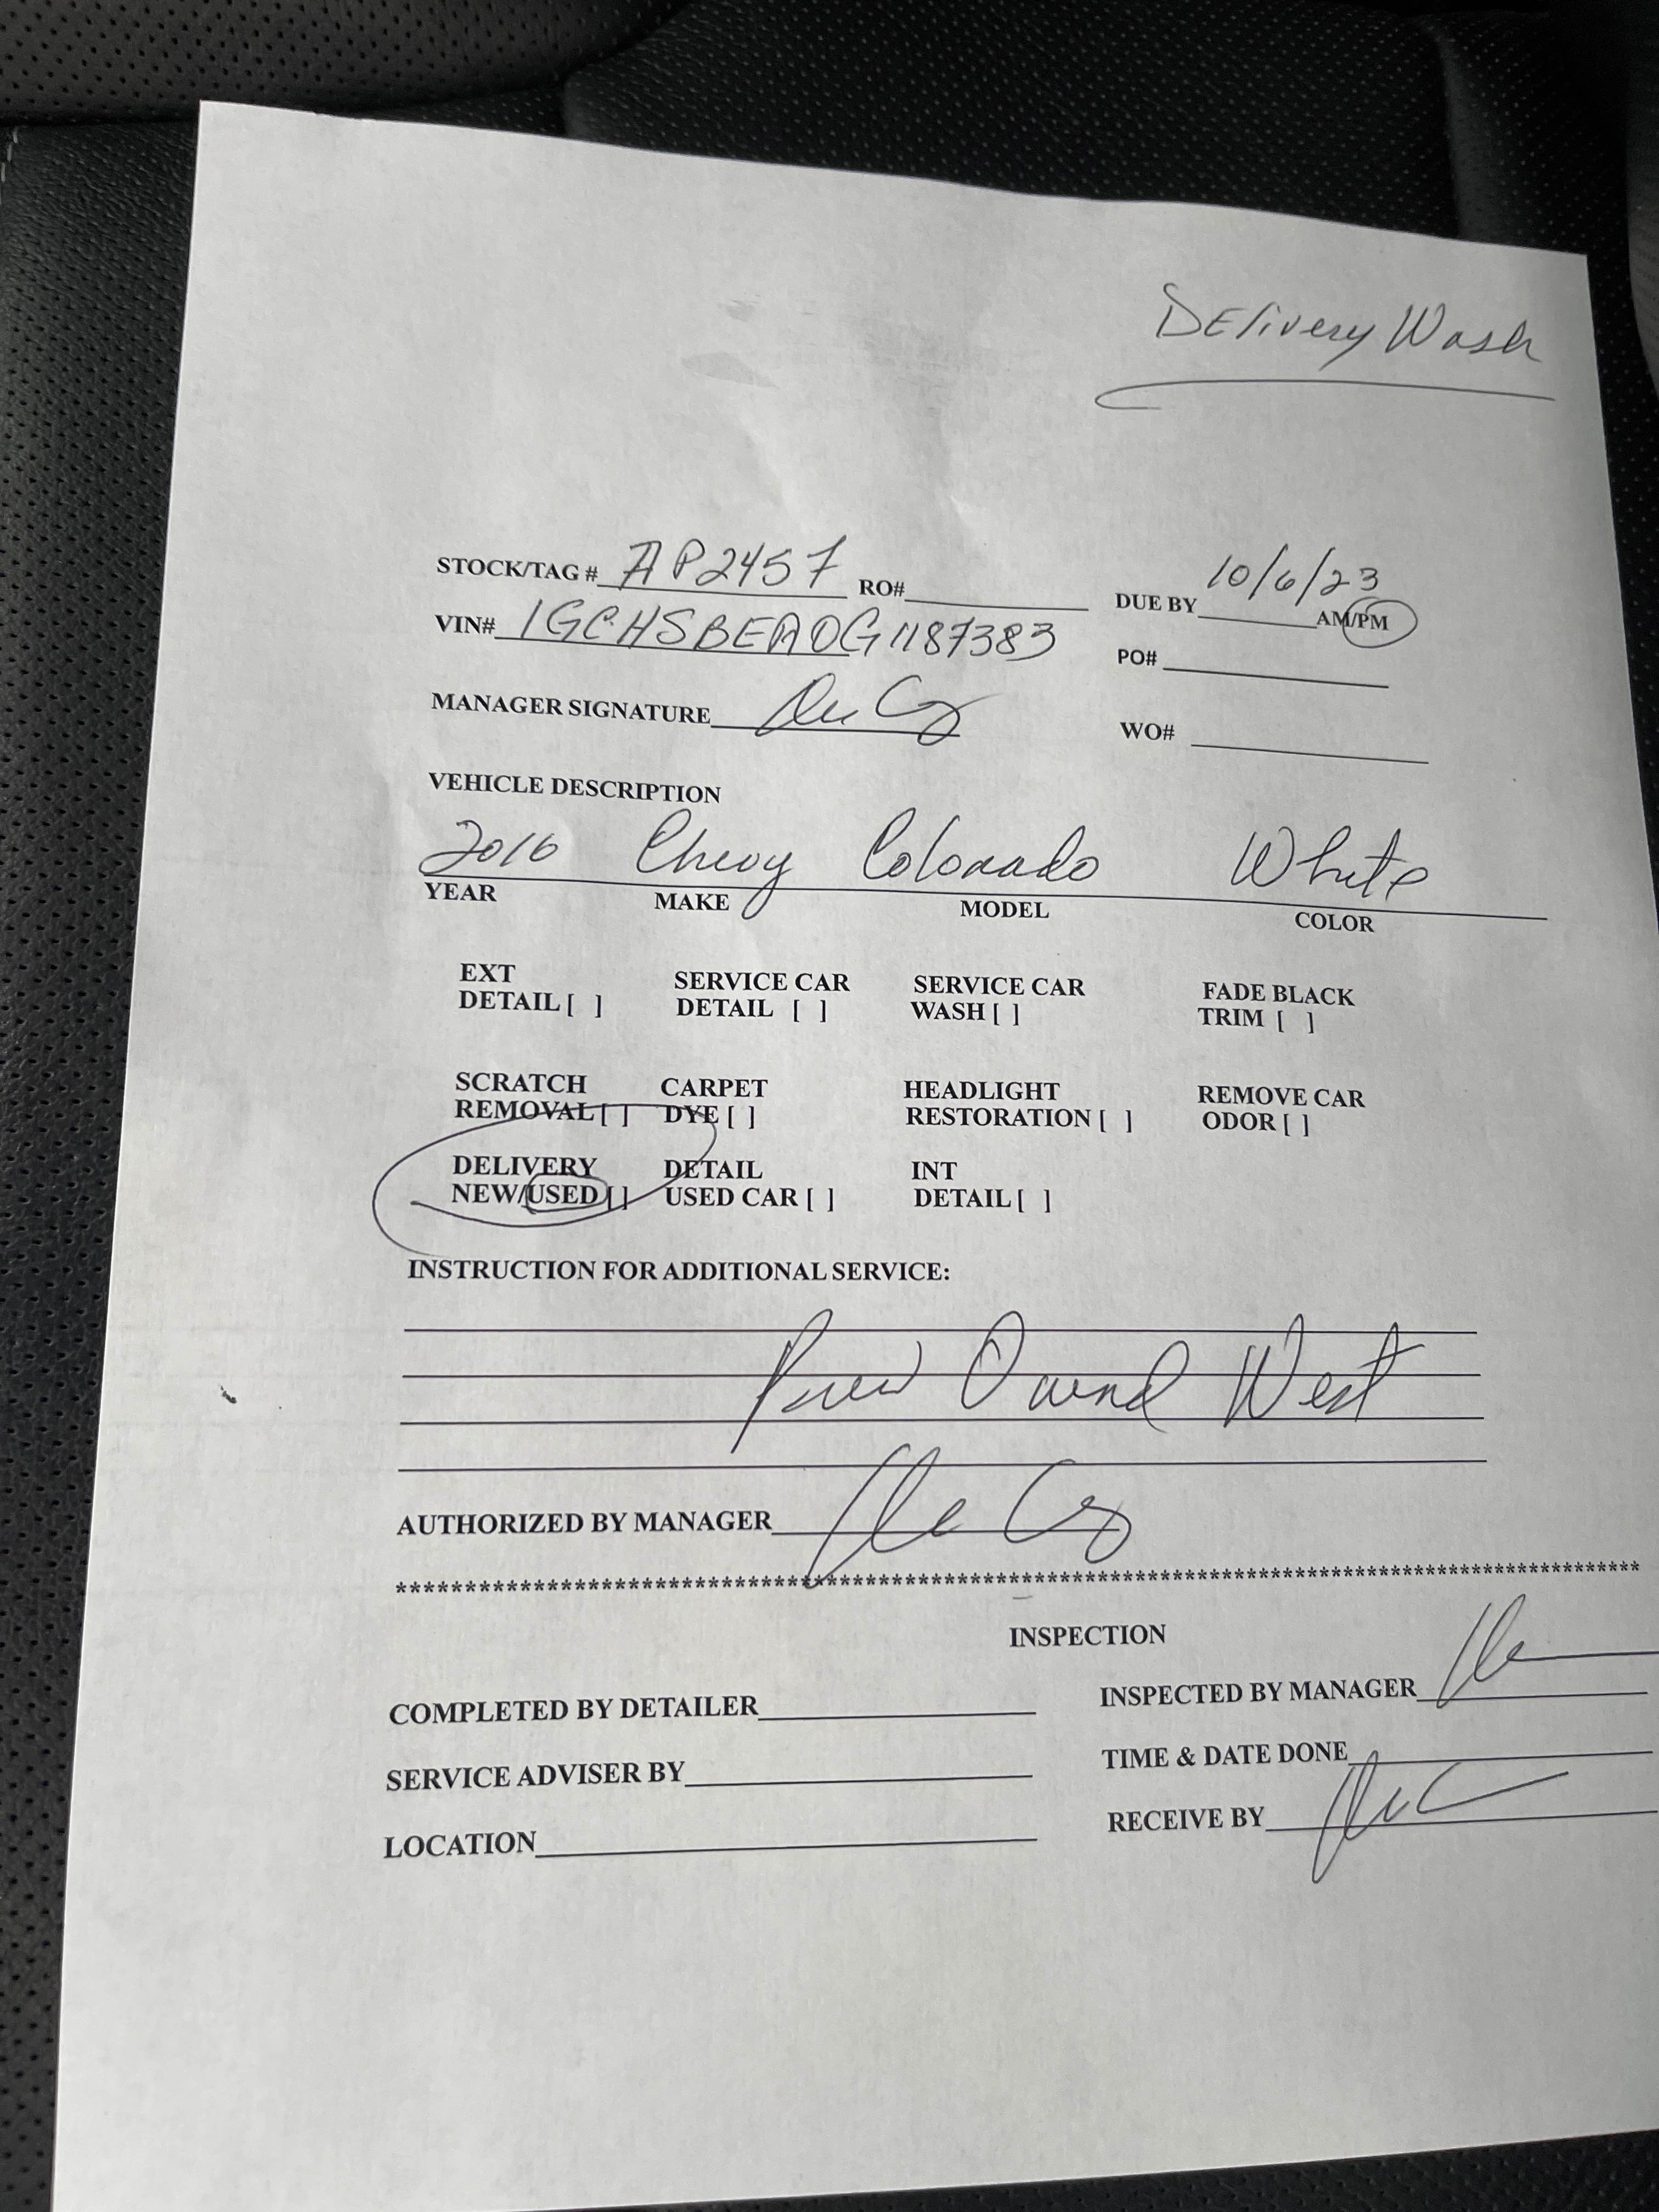 DElivery Wash
STOCK/TAG # AP2457 RO# DUE BY 10/6/23 AM/PM
VIN# 1GCHSBEA0G1187383 PO#
MANAGER SIGNATURE
WO#
VEHICLE DESCRIPTION
2016 Chevy Colorado White
YEAR MAKE MODEL COLOR
EXT SERVICE CAR SERVICE CAR FADE BLACK
DETAIL [ ] DETAIL [ ] WASH [ ] TRIM [ ]
SCRATCH CARPET HEADLIGHT REMOVE CAR
REMOVAL [ ] DYE [ ] RESTORATION [ ] ODOR [ ]
DELIVERY DETAIL INT
NEW/USED [ ] USED CAR [ ] DETAIL [ ]
INSTRUCTION FOR ADDITIONAL SERVICE:
West
AUTHORIZED BY MANAGER
****************************************************************************************
INSPECTION
COMPLETED BY DETAILER INSPECTED BY MANAGER
SERVICE ADVISER BY TIME & DATE DONE
LOCATION RECEIVE BY